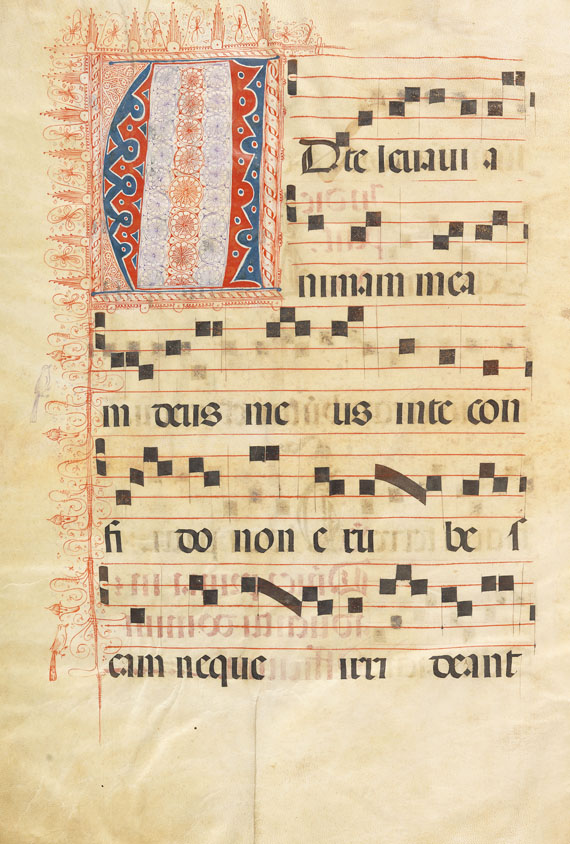 A
D te levavi a
nimam mea
m deus me us in te con
fi do non e ru be s
cam neque irri deant